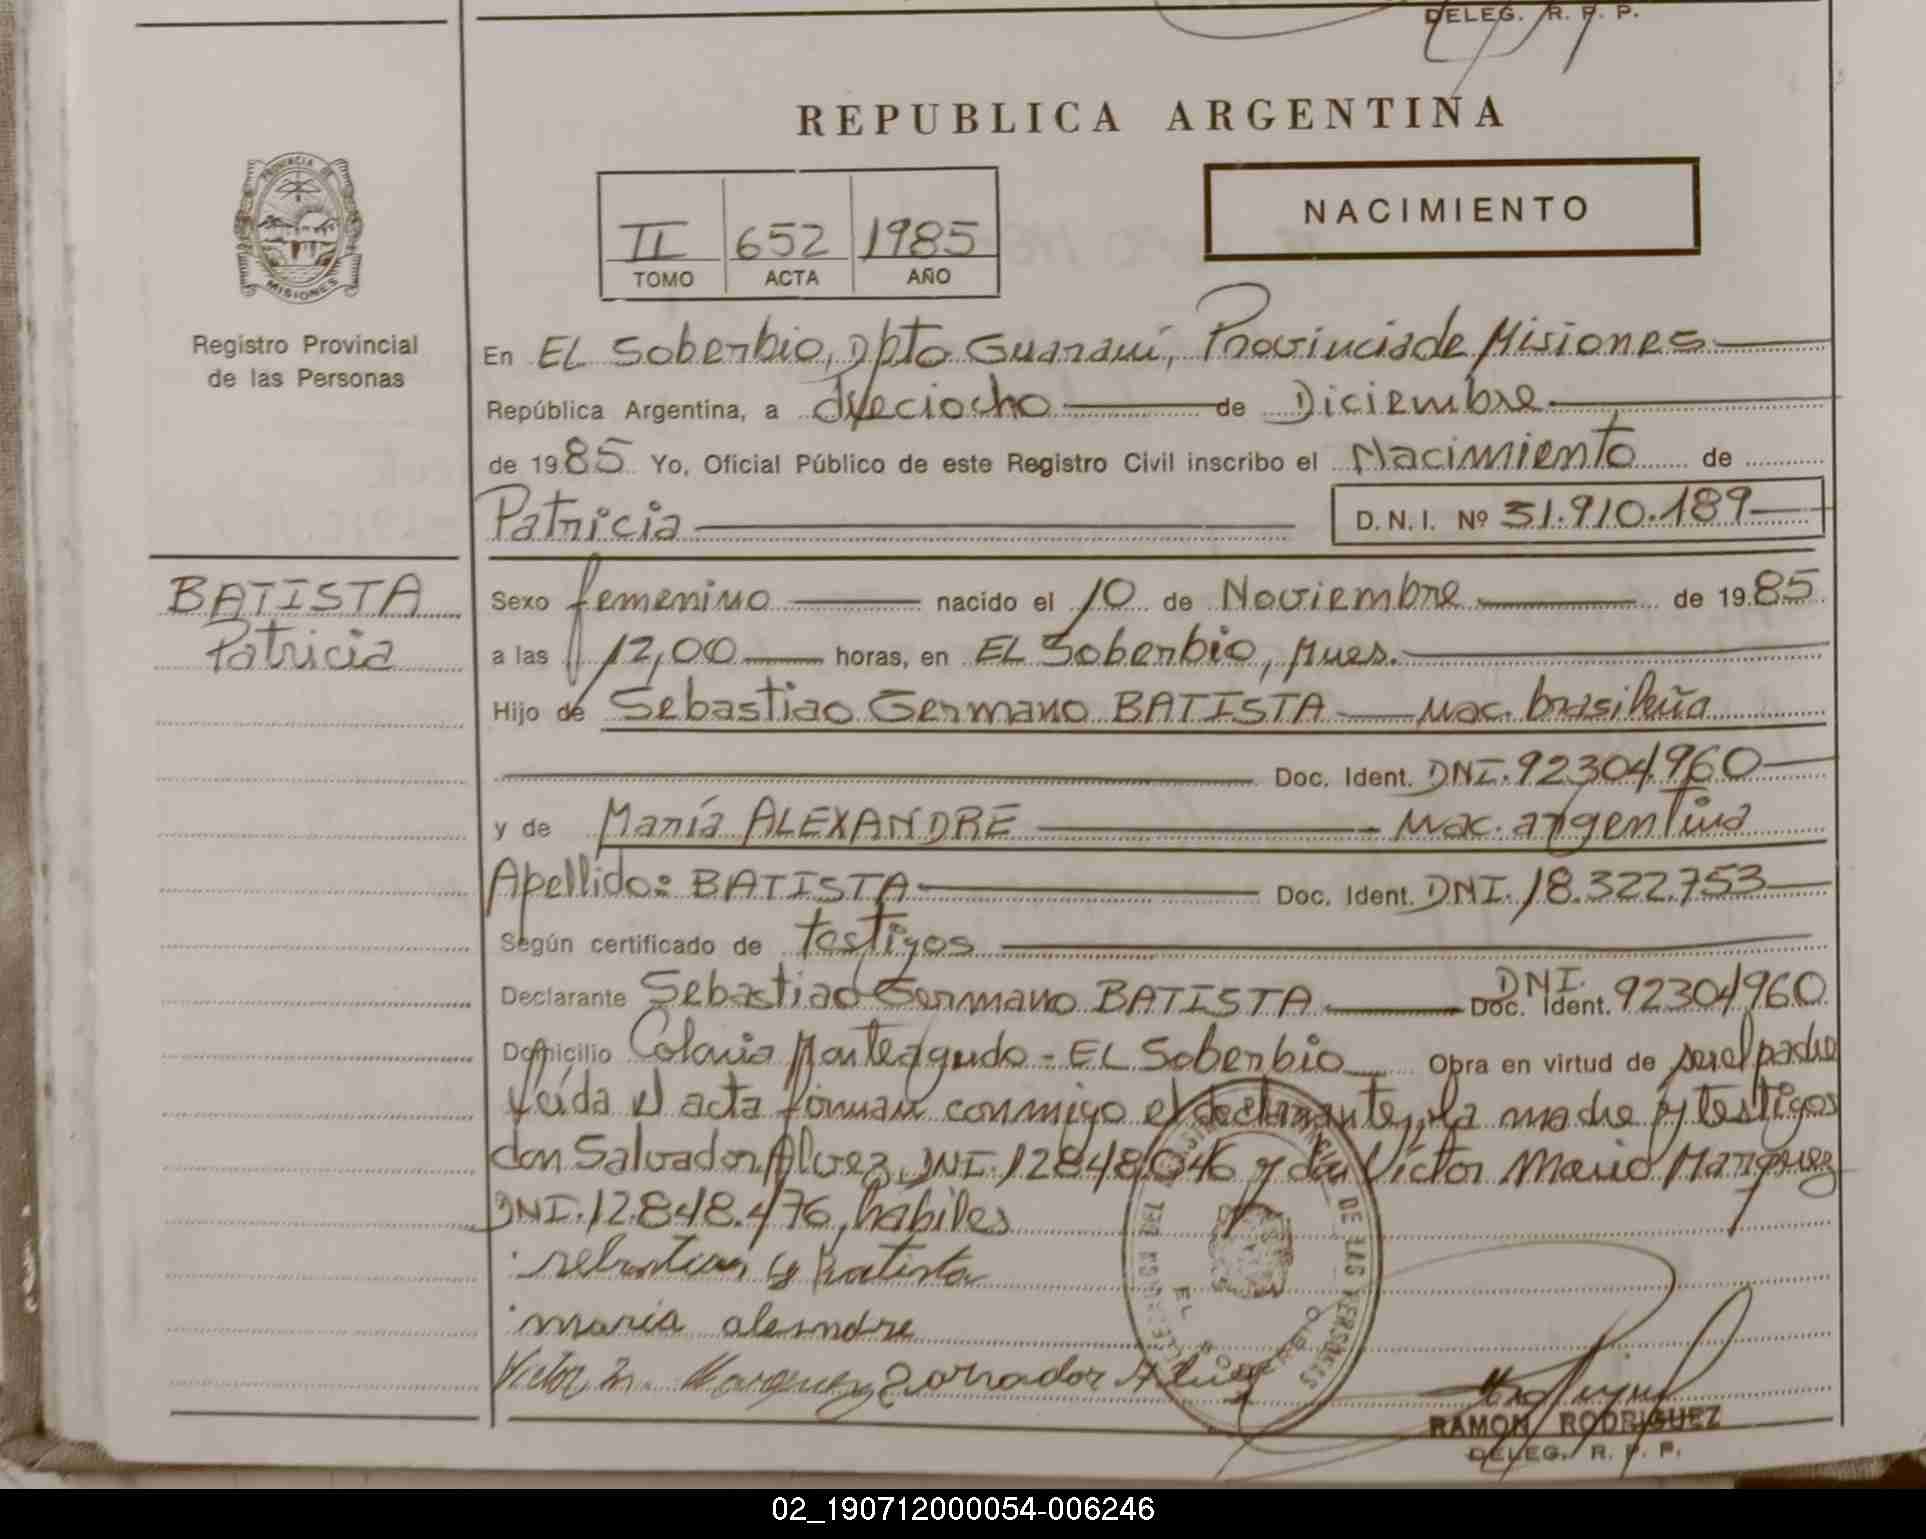 DELEG. R. P. P.
REPUBLICA ARGENTINA
PROVINCIA DE
MISIONES
Registro Provincial
de las Personas
II 652 1985
TOMO ACTA AÑO
NACIMIENTO
En EL Soberbio, Dpto Guaraní, Provincia de Misiones
República Argentina, a dieciocho de Diciembre
de 1985 Yo, Oficial Público de este Registro Civil inscribo el Nacimiento de
Patricia D. N. I. Nº 31.910.189
BATISTA
Patricia
Sexo femenino nacido el 10 de Noviembre de 1985
a las 12,00 horas, en EL Soberbio, Mnes.
Hijo de Sebastiao Germano BATISTA nac. brasileña
Doc. Ident. DNI. 92304960
y de María ALEXANDRE nac. argentina
Apellido: BATISTA Doc. Ident. DNI. 18.322.753
Según certificado de testigos
Declarante Sebastiao Germano BATISTA Doc. Ident. DNI. 92304960
Domicilio Colonia Monteagudo - EL Soberbio Obra en virtud de ser el padre
Leída el acta firman conmigo el declarante, la madre y testigos
don Salvador Alvez, DNI. 12848046 y don Víctor Mario Marquez
DNI. 12.848.476, habiles
maria alesndre
Victor M. Marquez
RAMON RODRIGUEZ
DELEG. R. P. P.
02_190712000054-006246